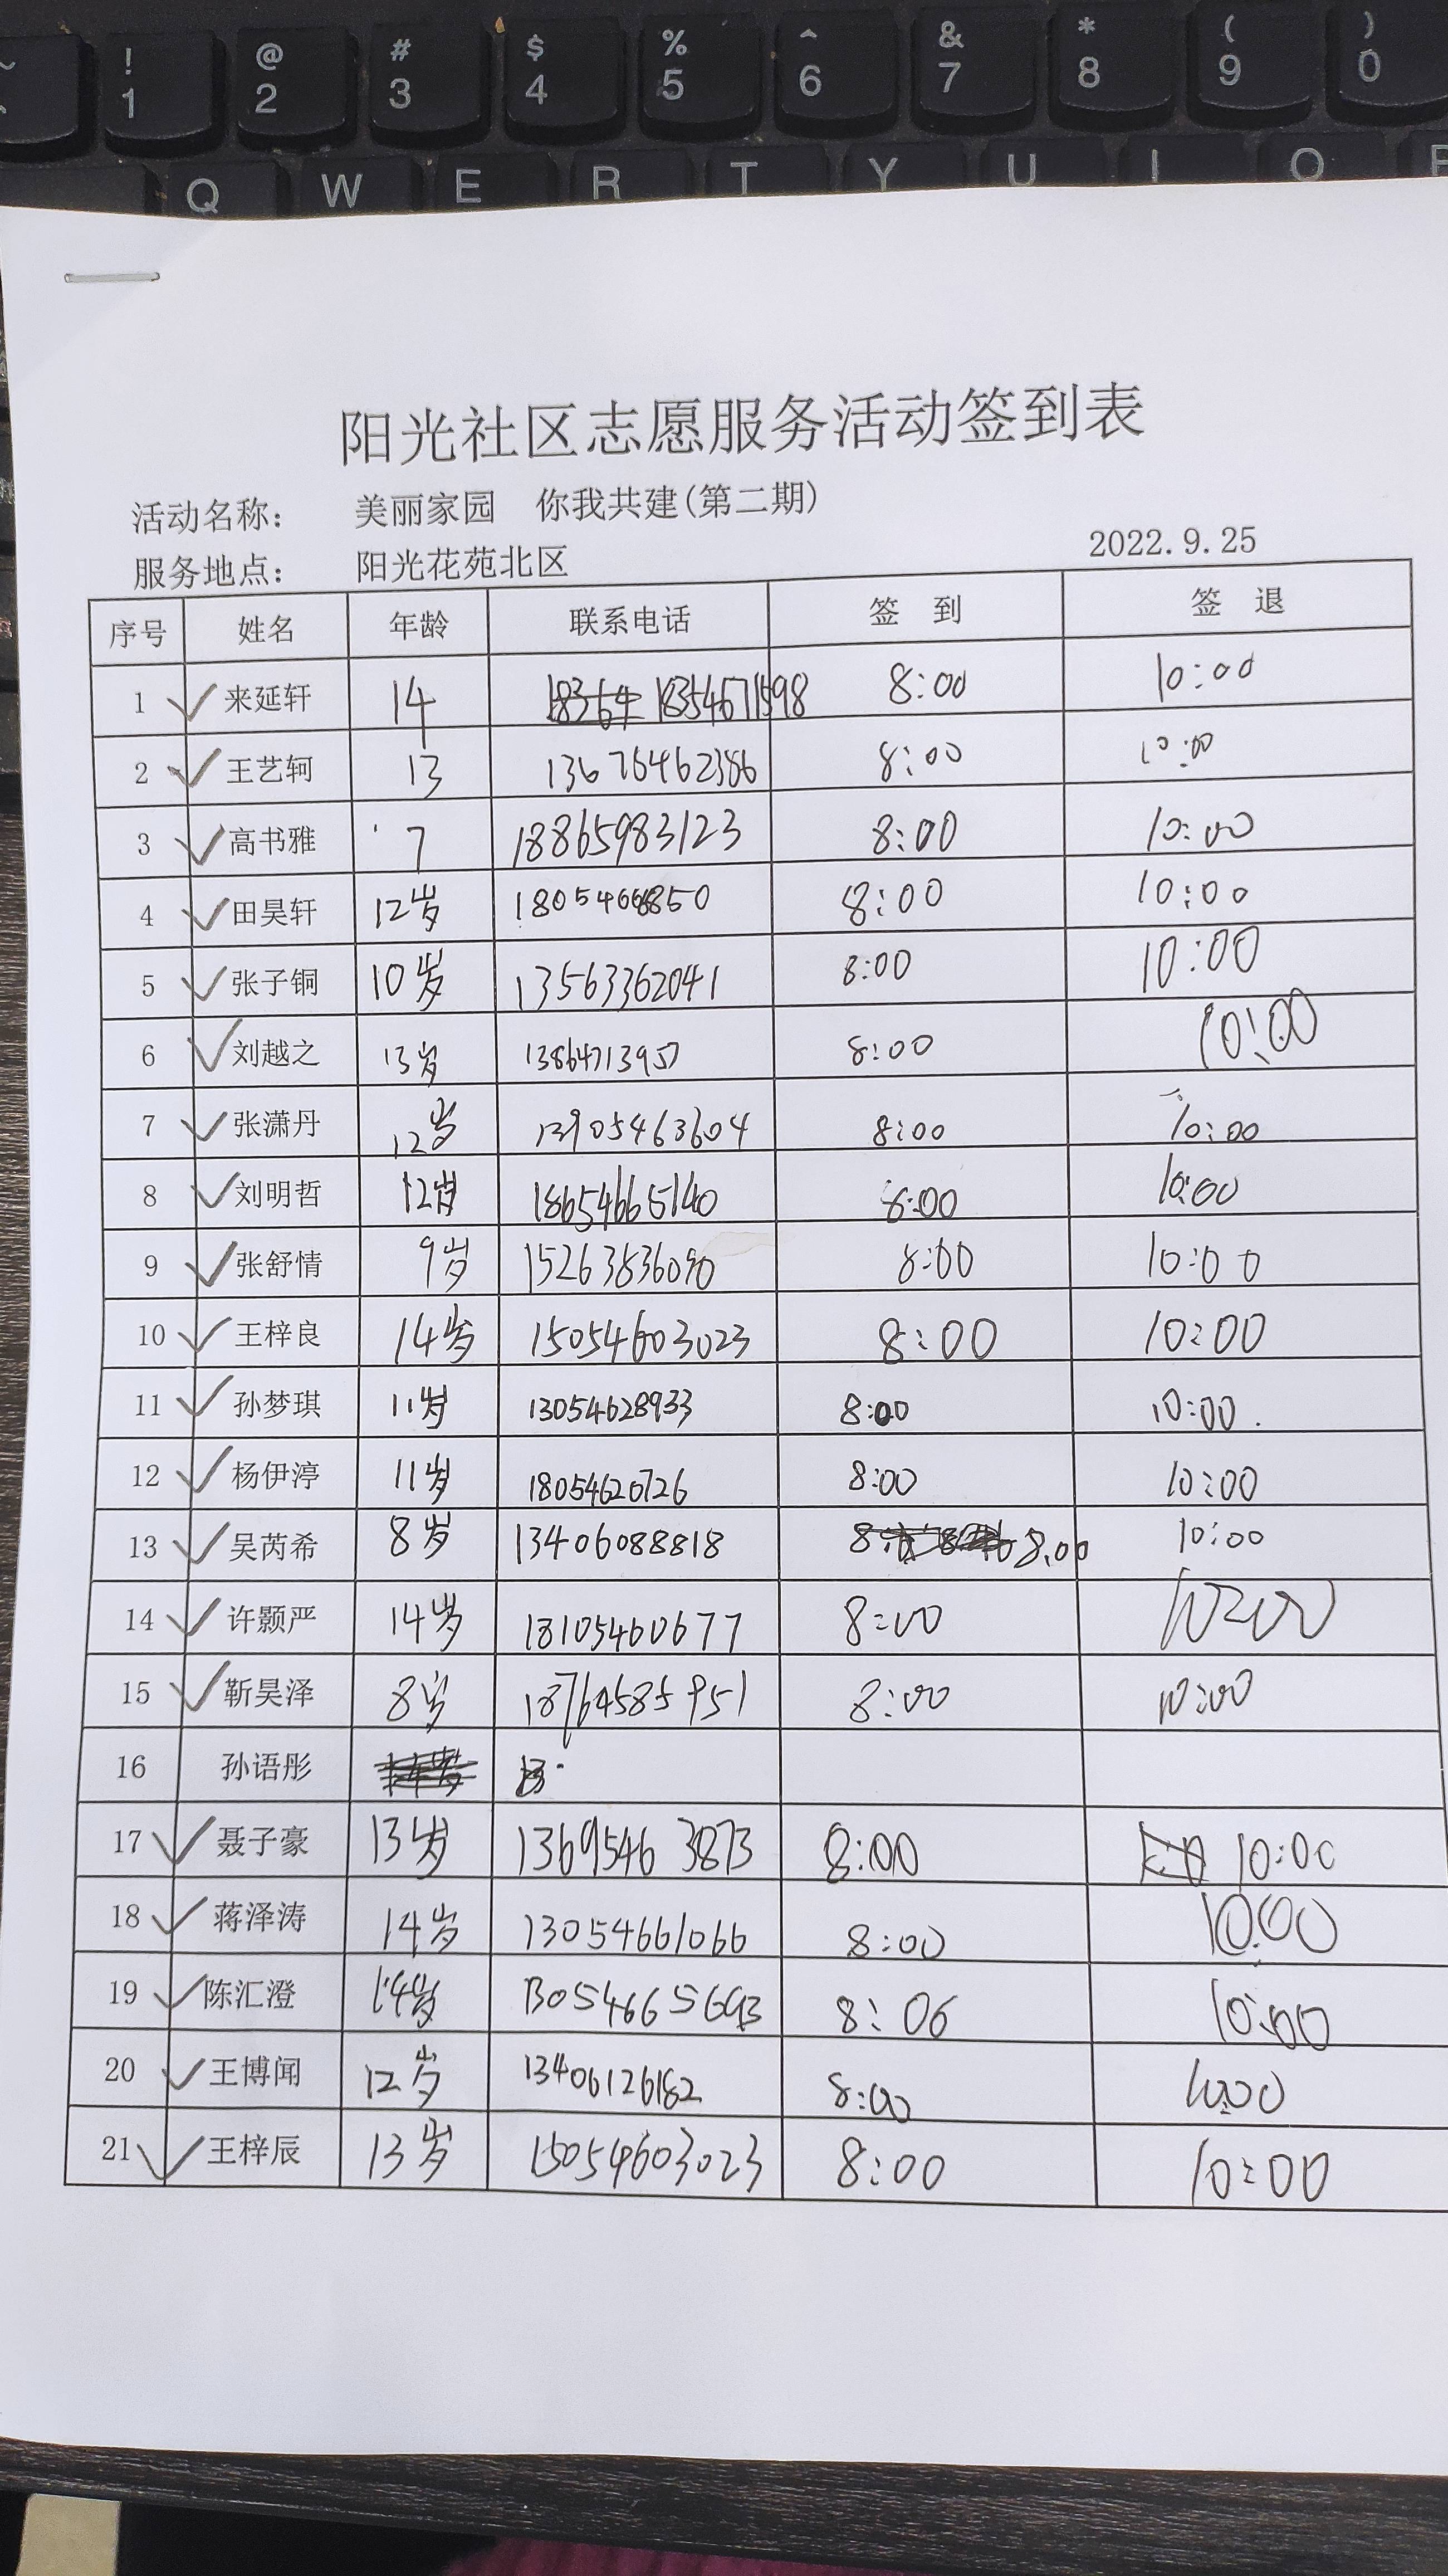 ~ ! 1 @ 2 # 3 $ 4 % 5 ^ 6 & 7 * 8 ( 9 ) 0
Q W E R T Y U I O P
阳光社区志愿服务活动签到表
活动名称： 美丽家园 你我共建(第二期)
2022.9.25
服务地点： 阳光花苑北区
序号 姓名 年龄 联系电话 签 到 签 退
1 来延轩 14 18354671598 8:00 10:00
2 王艺轲 13 13676462386 8:00 10:00
3 高书雅 7 18865983123 8:00 10:00
4 田昊轩 12岁 8:00 10:00
5 张子铜 10岁 13563362041 8:00 10:00
6 刘越之 13岁 8:00 10:00
7 张潇丹 12岁 13905463604 8:00 10:00
8 刘明哲 12岁 18654665140 8:00 10:00
9 张舒情 9岁 8:00 10:00
10 王梓良 14岁 15054603023 8:00 10:00
11 孙梦琪 11岁 13054628933 8:00 10:00
12 杨伊渟 11岁 18054620726 8:00 10:00
13 吴芮希 8岁 13406088818 8:00 10:00
14 许颢严 14岁 18105460677 8:00 10:00
15 靳昊泽 8岁 18764585951 8:00 10:00
16 孙语彤
17 聂子豪 13岁 13695463873 8:00 10:00
18 蒋泽涛 14岁 13054661066 8:00 10:00
19 陈汇澄 14岁 8:06 10:00
20 王博闻 12岁 13406126182 8:00 10:00
21 王梓辰 13岁 15054603023 8:00 10:00